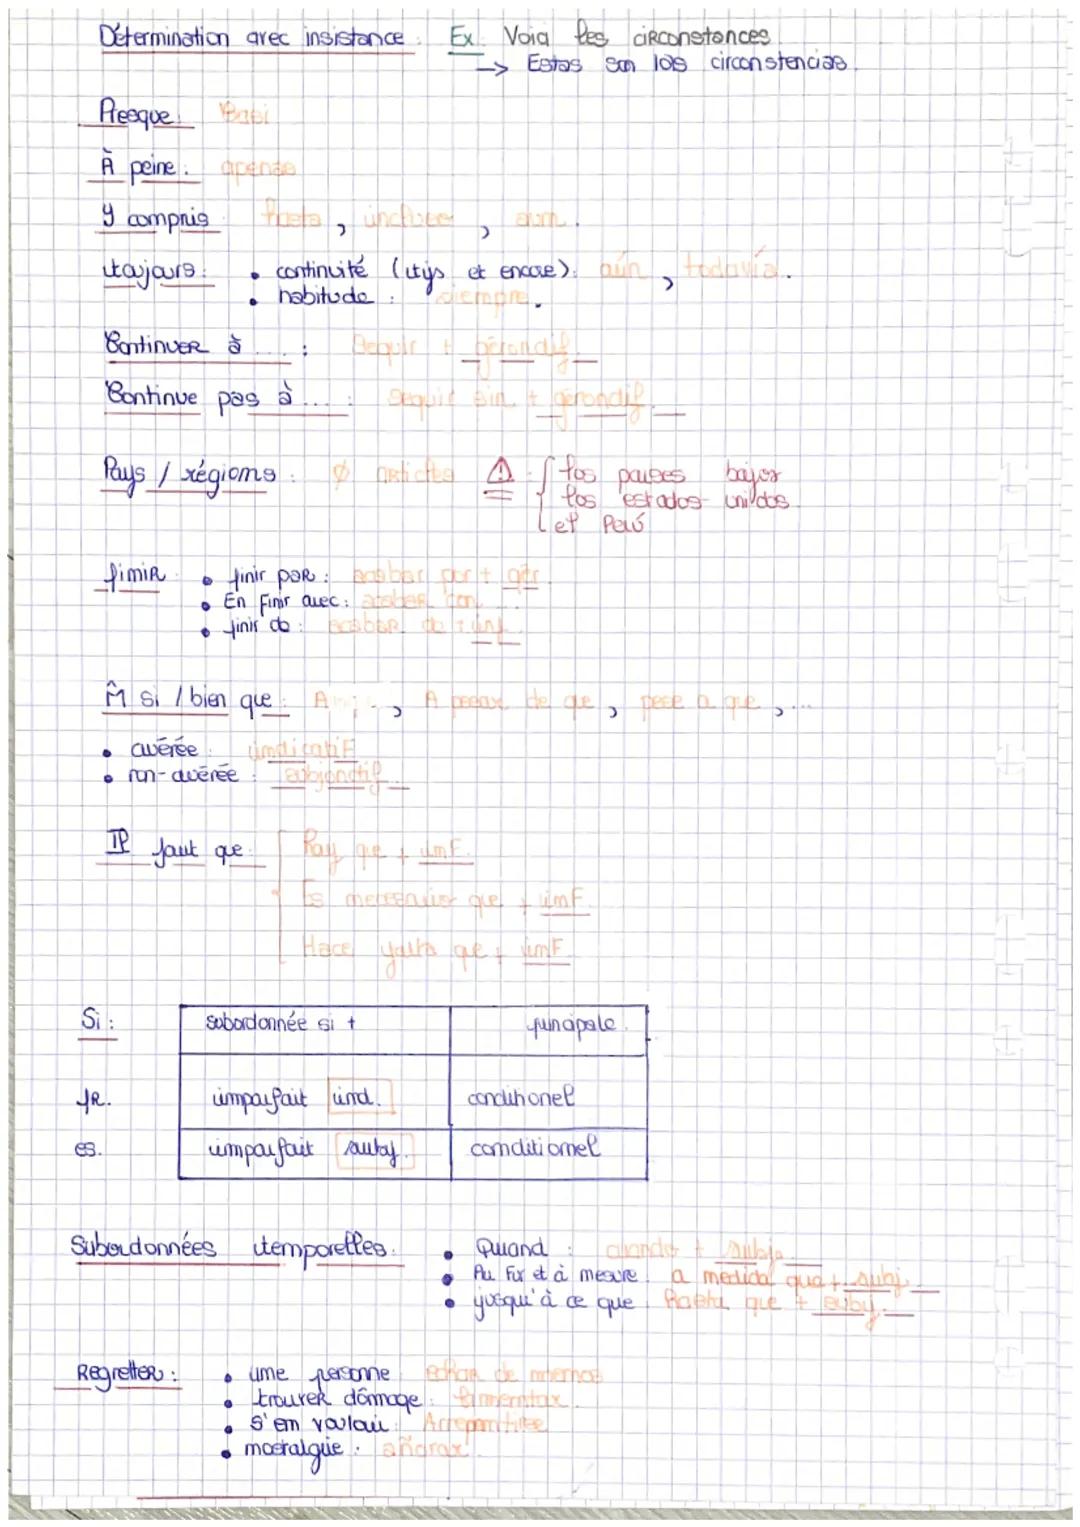 Détermination avec insistance : Ex : Voici les circonstances
→ Estas son las circonstencias.
Presque : Casi
À peine : apenas
Y compris : hasta, incluso, aun.
toujours : • continuité (tjs et encore) : aún, todavía.
• habitude : siempre.
Continuer à ... : Seguir + gérondif
Continue pas à ... : seguir sin + gérondif
Pays / régions : Ø articles ⚠ { los países bajos
los estados unidos
el Perú
finir : • finir par : acabar por + gér
• En finir avec : acabar con ...
• finir de : acabar de + inf.
M̂ si / bien que : A pesar de que, pese a que, ...
• avérée : indicatif
• non-avérée : subjonctif
Il faut que : Hay que + inf.
Es necesario que + inf.
Hace falta que + inf.
Si : subordonnée si + principale.
fR. imparfait ind. conditionel
es. imparfait subj. conditionel
Subordonnées temporelles : • Quand : cuando + subj.
• Au fur et à mesure : a medida que + subj.
• jusqu'à ce que : hasta que + subj.
Regretter : • une personne : echar de menos
• trouver dommage : lamentar.
• s'en vouloir : Arrepentirse
• nostalgie : añorar.